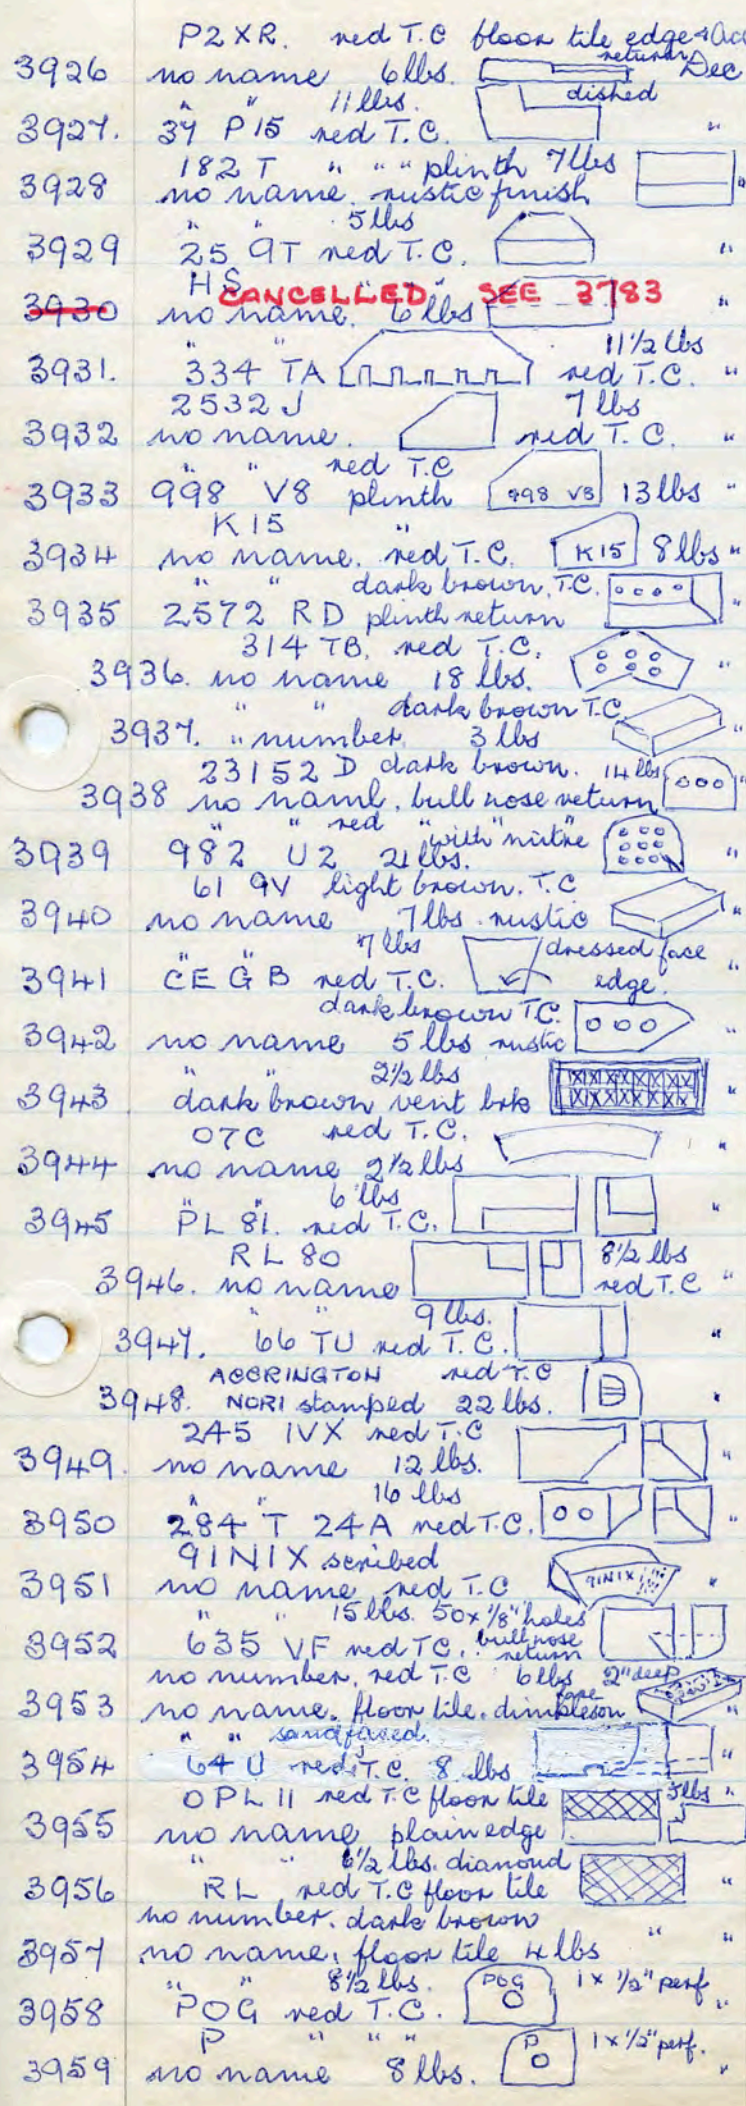 P2XR. red T.C floor tile edge & Acc
returns
3926 no name 6lbs. Dec
" " 11lbs. dished
3927. 37 P15 red T.C. "
182 T " " " plinth 7lbs
3928 no name. rustic finish "
" " 5lbs
3929 25 9T red T.C. "
HS " "
CANCELLED. SEE 3783
3930 no name. 6lbs "
" " 11 1/2 lbs
3931. 334 TA red T.C. "
2532 J 7 lbs
3932 no name. red T.C. "
" " red T.C
3933 998 V8 plinth 998 V8 13lbs "
K15 "
3934 no name. red T.C. K15 8lbs "
" " dark brown. T.C.
3935 2572 RD plinth return "
314 TB. red T.C.
3936. no name 18 lbs. "
" " dark brown T.C
3937. " number. 3 lbs "
23152 D dark brown. 14 lbs
3938 no name. bull nose return "
" " red " with mitre
3939 982 U2 21 lbs. "
61 9V light brown. T.C
3940 no name 7lbs. rustic "
" " 7 lbs dressed face
3941 CEGB red T.C. edge. "
dark brown T.C.
3942 no name 5 lbs rustic "
" " 2 1/2 lbs
3943 dark brown vent brk "
07C red T.C.
3944 no name 2 1/2 lbs "
" " 6 lbs
3945 PL 81. red T.C. "
RL 80 8 1/2 lbs
3946. no name red T.C "
" " 9 lbs.
3947. 66 TU red T.C. "
ACCRINGTON red T.C
3948. NORI stamped 22 lbs. "
245 IVX red T.C
3949. no name 12 lbs. "
" " 16 lbs
3950 284 T 24A red T.C. "
91N1X scribed
3951 no name red T.C 91N1X "
" " 15lbs. 50 x 1/8" holes
3952 635 VF red TC. bull nose return "
no number. red T.C 6 lbs 2" deep
3953 no name. floor tile. dimples on face "
" " sandfaced.
3954 64 U red T.C. 8 lbs "
OPL 11 red T.C floor tile 5lbs "
3955 no name plain edge
" " 6 1/2 lbs. diamond
3956 RL red T.C floor tile "
no number. dark brown
3957 no name. floor tile 4 lbs " "
" " 8 1/2 lbs. POG 1 x 1/2" perf
3958 POG red T.C. "
P " " " P 1 x 1/2" perf.
3959 no name 8 lbs. "